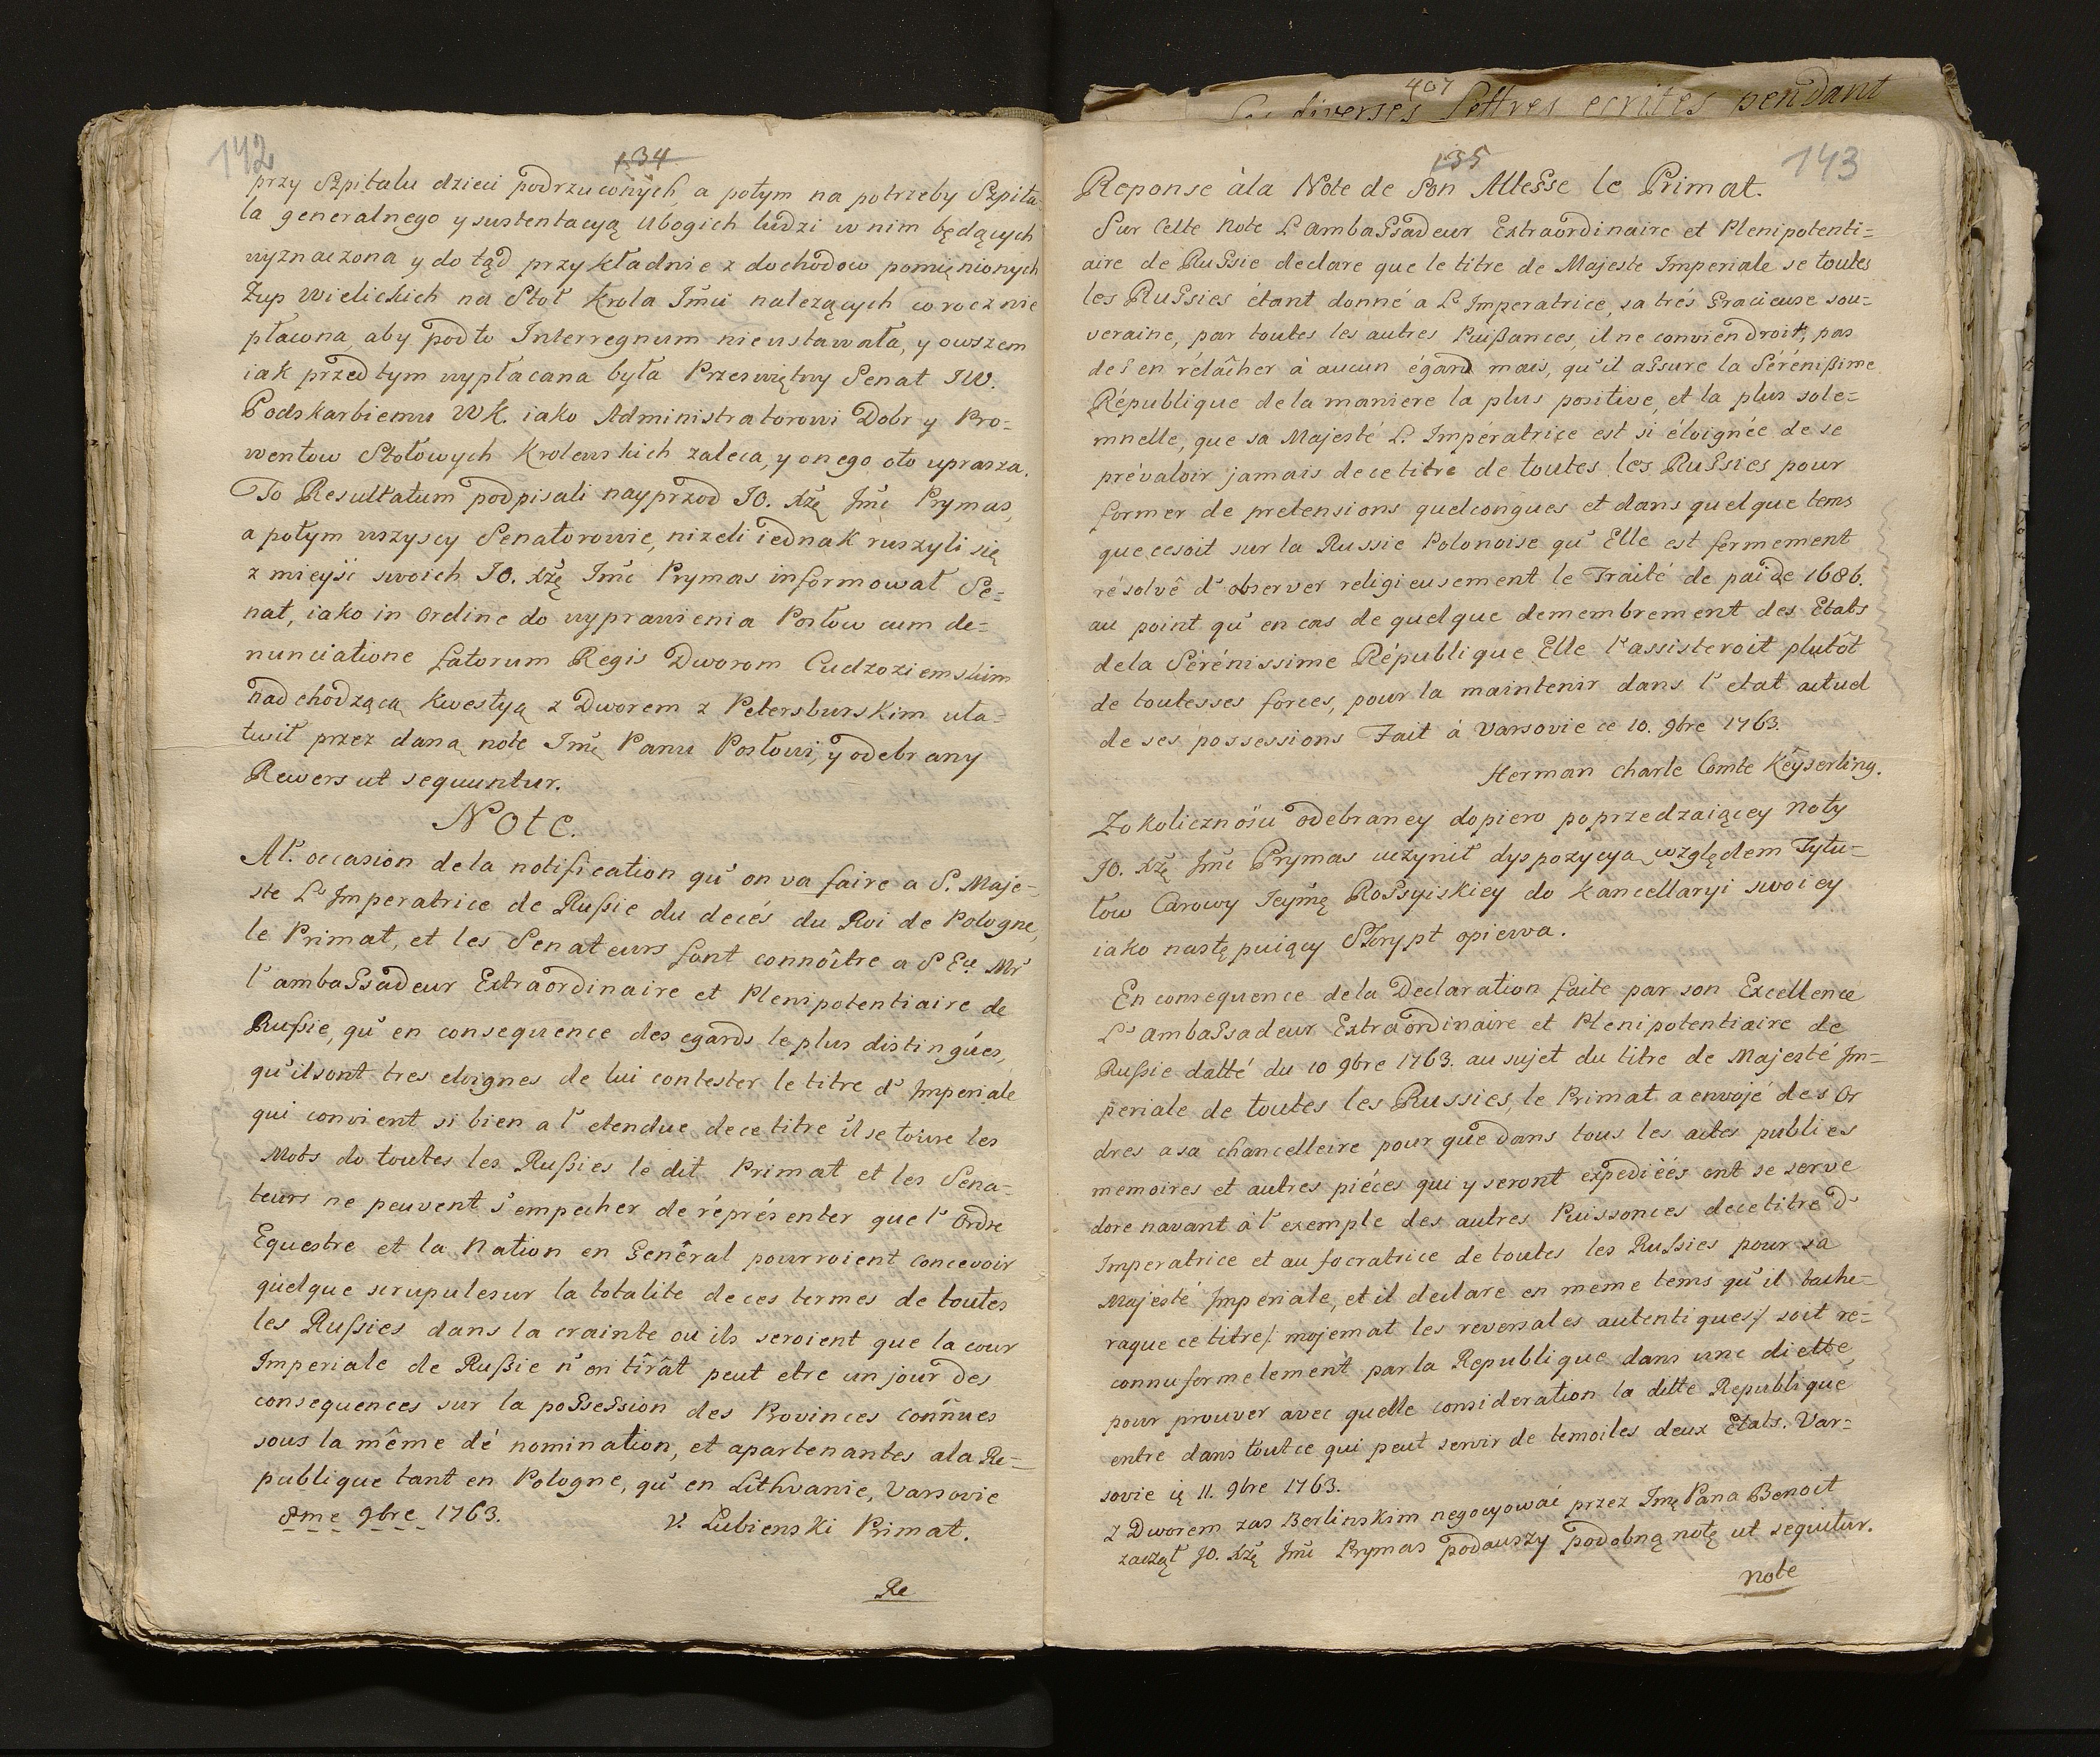 142
134
przy Szpitalu dzieci podrzuconych, a potym na potrzeby Szpita
la generalnego y sustentacyą Ubogich ludzi w nim będących
wyznaczona y do tąd przykładnie z dochodow pomięnionych
Żup Wielickich na Stoł Krola Jmci nalezących corocznie
płacona, aby pod to Interregnum nieustawała, y owszem
iak przedtym wypłacana była Przeswiętny Senat JW.
Podskarbiemu WK. iako Administratorowi Dobr y Pro=
wentow Stołowych Krolewskich zaleca, y onego oto uprasza.
To Resultatum podpisali nayprzod JO. Xżę Jmć Prymas,
a potym wszyscy Senatorowie, nizeli iednak ruszyli się
z mieysć swoich JO. Xżę Jmć Prymas informował Se=
nat, iako in ordine do wyprawienia Posłow cum de=
nunciatione fatorum Regis Dworom Cudzoziemskim
nadchodzącą kwestyą z Dworem z Petersburskim uła=
twił przez daną note Jmć Panu Posłowi, y odebrany
Rewers ut sequuntur.
Note.
A l'occasion dela notification qu'on va faire a S. Maje=
ste L'Imperatrice de Rußie du decés du Roi de Pologne,
le Primat, et les Senateurs font connoître a S Ece Mr
l'ambassadeur Extraordinaire et Plenipotentiaire de
Rußie, qu'en consequence des egards le plus distingúes,
qu'ilsont tres eloignes de lui contester le titre d'Imperiale
qui convient si bien a l'etendue dece titre il se toûve les
Mots do toutes les Rußies le dit Primat et les Sena=
teurs ne peuvent s'empecher de réprésenter que l'Ordre
Equestre et la Nation en Genêral pourroient concevoir
quelque scrupulesur la totalite deces termes de toutes
les Rußies dans la crainte ou ils seroient que la cour
Imperiale de Rußie n'en tîrât peut etre un jour des
consequences sur la possession des Provinces connues
sous la même dé nomination, et apartenantes ala Re=
publique tant en Pologne, qu'en Lithvanie, Varsovie
8me 9bre 1763. V. Lubienski Primat.
Re
407
diverses lettres ecrites pendant
135
143
Reponse àla Note de Son Altesse le Primat.
Sur Cette Note L'ambassadeur Extraordinaire et Plenipotenti=
aire de Russie declare que le titre de Majeste Imperiale se toutes
les Russies étant donné a L'Imperatrice, sa trés Gracieuse sou=
veraine, par toutes les autres Puißances, il ne conviendroit, pas
des en rélâcher à aucun égard mais, qu'il assure la Sérénißime
République dela maniere la plus positive, et la plus sole=
mnelle, que sa Majesté L'Impératrice est si éloignée de se
prévaloir jamais decetitre de toutes les Russies pour
former de pretensions quelconques et dans quelque tems
que cesoit sur la Russie Polonoise qu'Elle est fermement
résolvê d'observer religieusement le Traité de paide 1686.
au point qu'en cas de quelque demembrement des Etats
dela Sérénissime République Elle l'assisteroit plutôt
de toutesses forces, pour la maintenir dans l'etat actuel
de ses possessions Fait à Varsovie ce 10. 9bre 1763.
Herman Charle Comte Keyserling.
Zokolicznośći odebraney dopiero poprzedzaiącey noty
JO. Xżę Jmć Prymas uczynił dyspozycyą względem Tytu=
łow Carowy Jeymę Rossyiskiey do kancellaryi swoiey
iako następuiący Skrypt opiewa.
En consequence dela Declaration faite par son Excellence
L'ambassadeur Extraordinaire et Plenipotentiaire de
Rußie datté du 10 9bre 1763. au sujet du titre de Majesté Im=
periale de toutes les Russies, le Primat a envojé des Or
dres a sa chancelleire pour que dans tous les actes publies
memoires et autres piéces qui y seront expediëés ont se serve
dore navant à l'exemple des autres Puissonces decetitre d'
Imperatrice et au focratrice de toutes les Russies pour sa
Majesté Imperiale, et il declare en meme tems qu'il tache=
raque ce titre /: mojemat les reversales autentiques:/ soit re=
connu formelement par la Republique dans une diette,
pour prouver avec quelle consideration la ditte Republique
entre dans toutce qui peut servir de temoiles deux Etats. Var=
sovie ię 11. 9bre 1763.
Z Dworem zas Berlinskim negocyować przez Jmę Pana Benoit
zaczął JO. Xżę Jmć Prymas podawszy podobną notę ut sequitur.
note